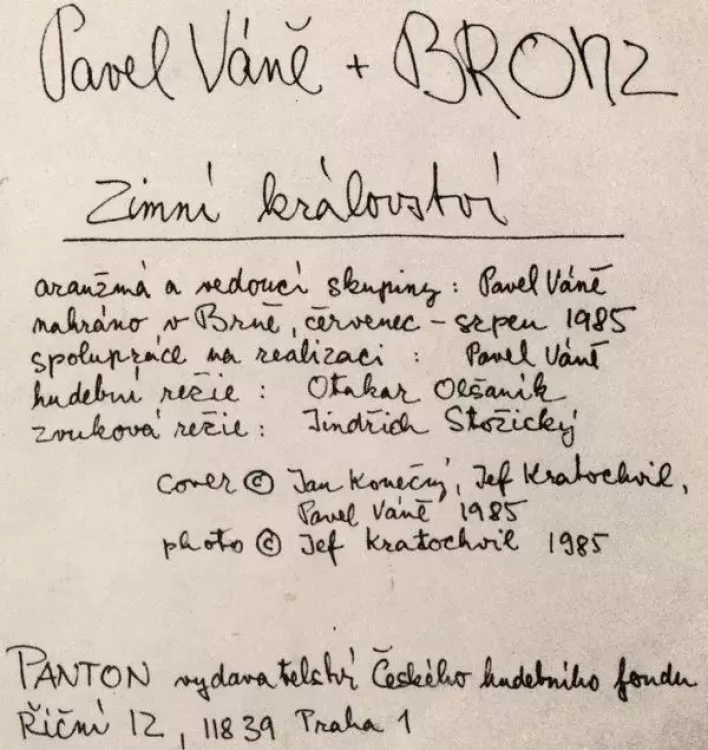 Pavel Váně + BRONZ
Zimní království
aranžmá a vedoucí skupiny : Pavel Váně
nahráno v Brně, červenec – srpen 1985
spolupráce na realizaci : Pavel Váně
hudební režie : Otakar Olšaník
zvuková režie : Jindřich Stožický
cover © Jan Konečný, Jef Kratochvil,
Pavel Váně 1985
photo © Jef Kratochvil 1985
PANTON vydavatelství Českého hudebního fondu
Říční 12, 118 39 Praha 1